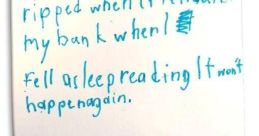 ripped when it
my bank when I
Fell asleep reading It won't
happenagain.